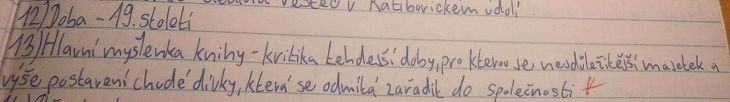 v Ratibořickém údolí.
12) Doba - 19. století
13) Hlavní myšlenka knihy - kritika tehdejší doby, pro kterou je nejdůležitější majetek a
výše postavení chudé dívky, která se odmítá zařadit do společnosti